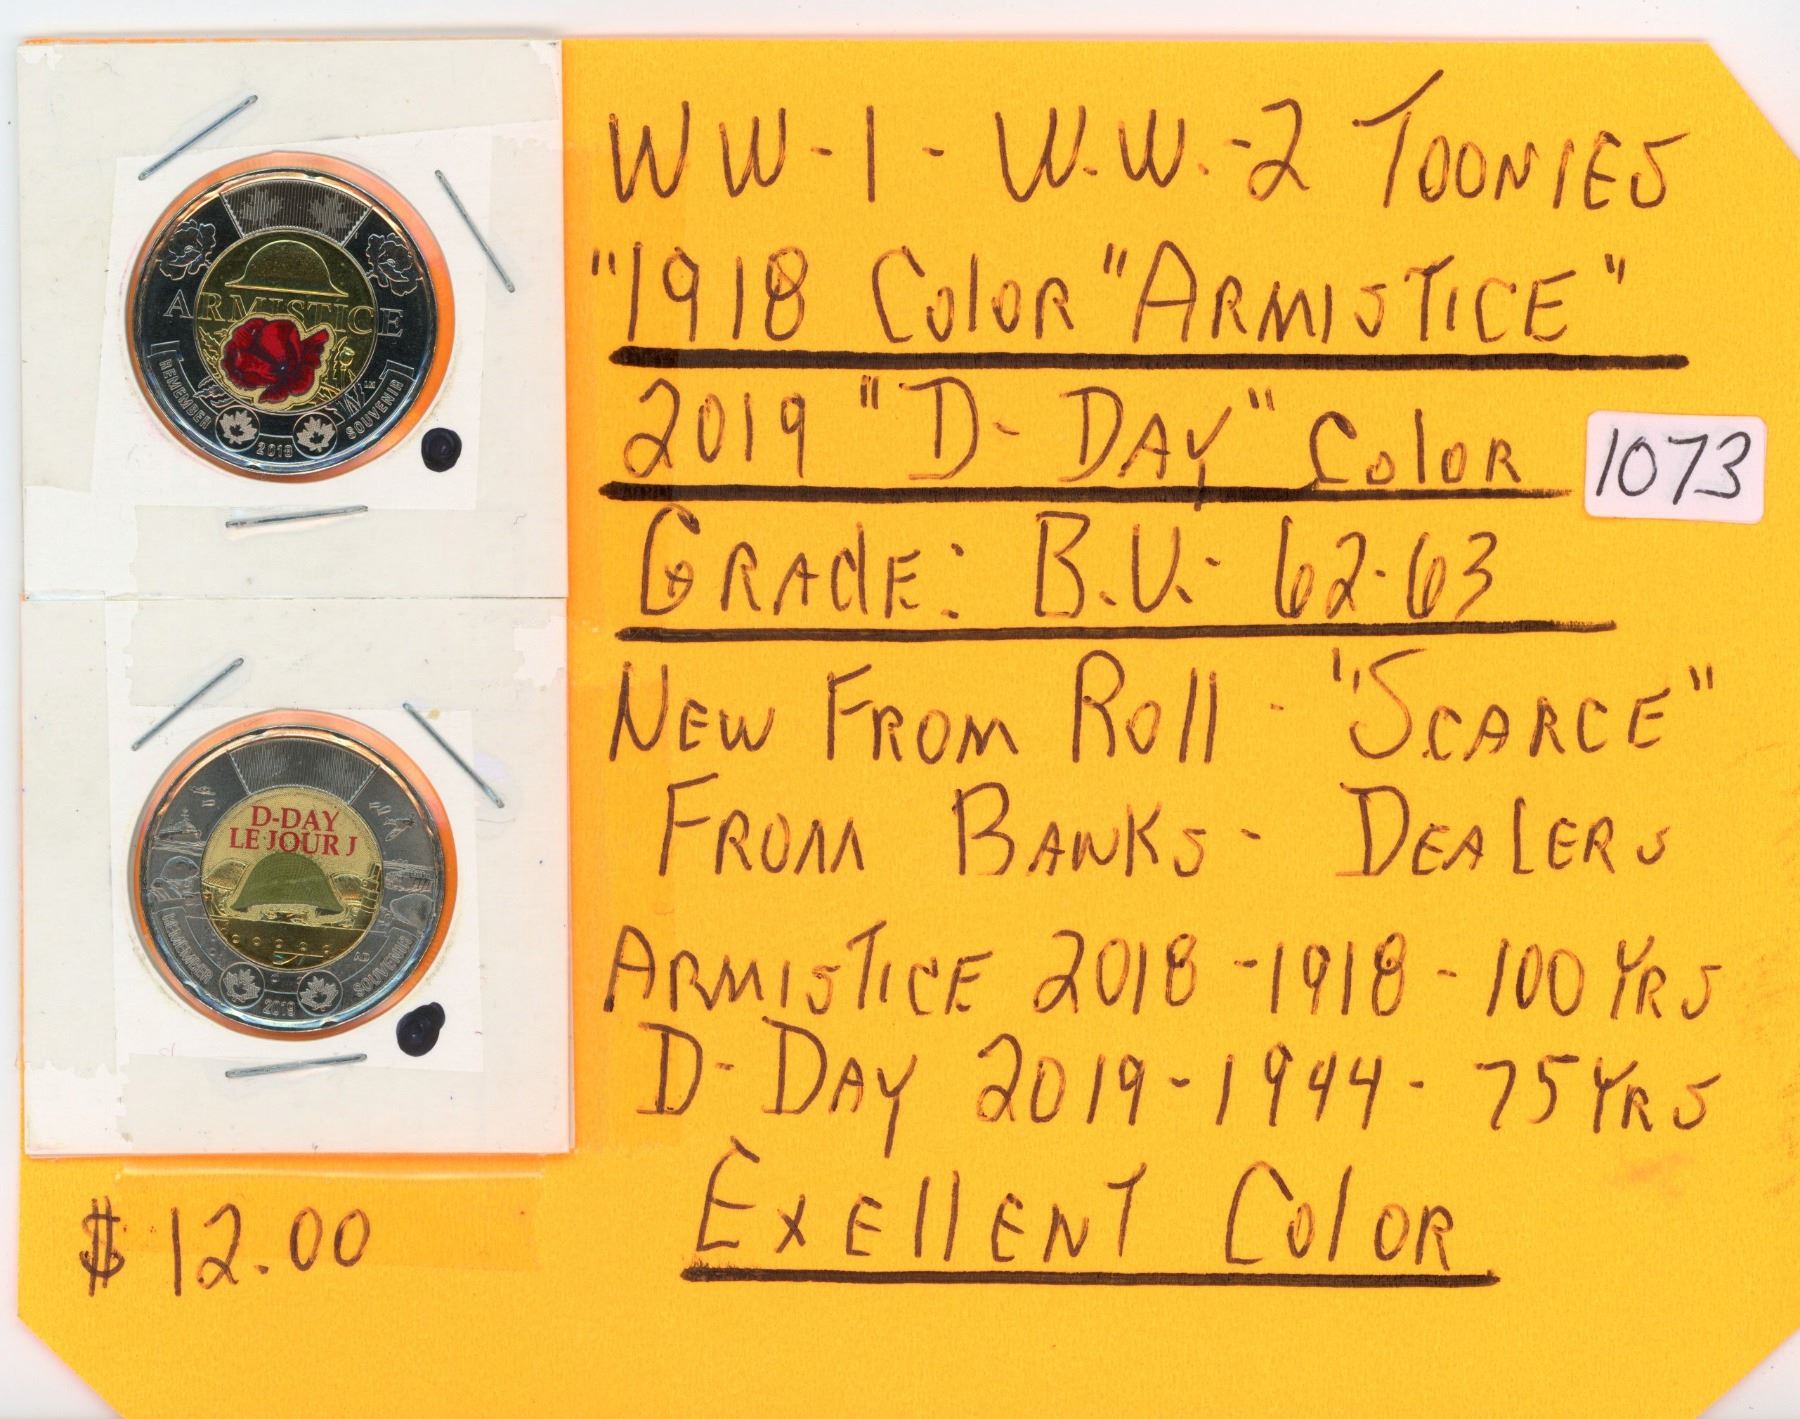 WW-1 - W.W.-2 TOONIES
"1918 COLOR "ARMISTICE"
2019 "D-DAY" COLOR
1073
GRADE: B.U.- 62-63
NEW FROM ROLL - "SCARCE"
FROM BANKS - DEALERS
ARMISTICE 2018 - 1918 - 100 YRS
D-DAY 2019 - 1944 - 75 YRS
EXELLENT COLOR
$12.00
ARMISTICE
REMEMBER
SOUVENIR
LH
2018
D-DAY
LE JOUR J
REMEMBER
SOUVENIR
AD
2019